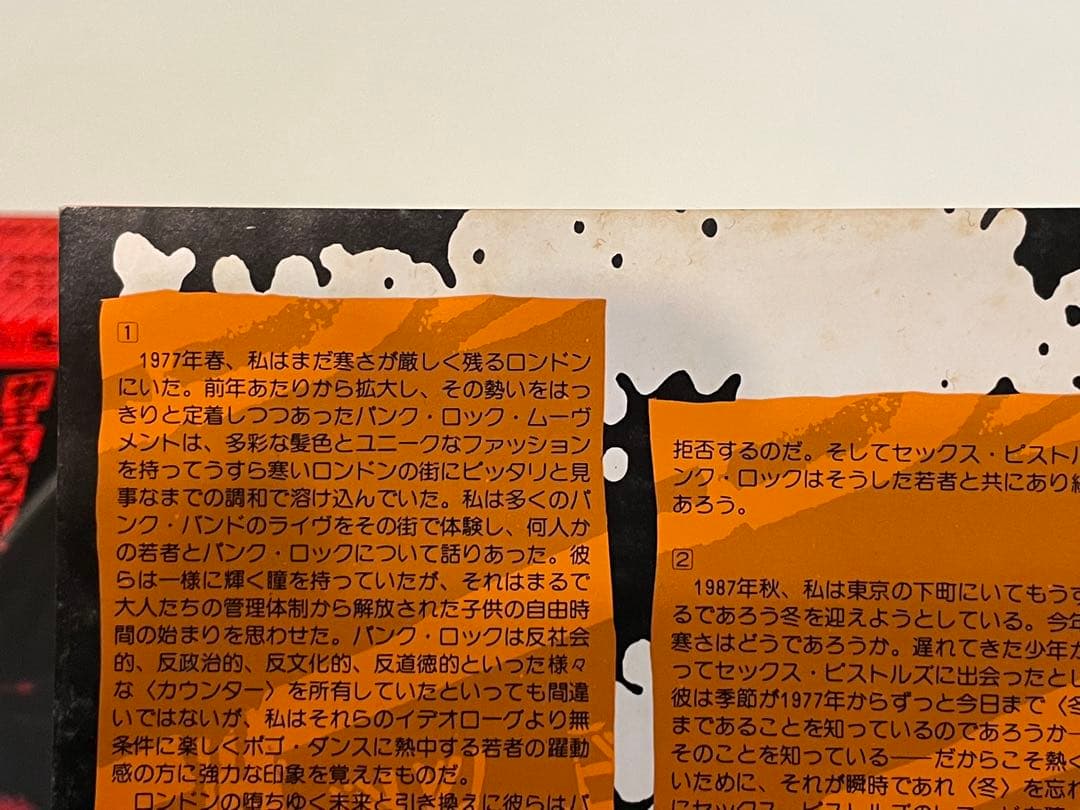 1
1977年春、私はまだ寒さが厳しく残るロンドン
にいた。前年あたりから拡大し、その勢いをはっ
きりと定着しつつあったパンク・ロック・ムーヴ
メントは、多彩な髪色とユニークなファッション
を持ってうすら寒いロンドンの街にピッタリと見
事なまでの調和で溶け込んでいた。私は多くのパ
ンク・バンドのライヴをその街で体験し、何人か
の若者とパンク・ロックについて話りあった。彼
らは一様に輝く瞳を持っていたが、それはまるで
大人たちの管理体制から解放された子供の自由時
間の始まりを思わせた。パンク・ロックは反社会
的、反政治的、反文化的、反道徳的といった様々
な〈カウンター〉を所有していたといっても間違
いではないが、私はそれらのイデオローグより無
条件に楽しくポゴ・ダンスに熱中する若者の躍動
感の方に強力な印象を覚えたものだ。
ロンドンの堕ちゆく未来と引き換えに彼らはパ
拒否するのだ。そしてセックス・ピストル
ンク・ロックはそうした若者と共にあり続
あろう。
2
1987年秋、私は東京の下町にいてもうす
るであろう冬を迎えようとしている。今年
寒さはどうであろうか。遅れてきた少年が
ってセックス・ピストルズに出会ったとし
彼は季節が1977年からずっと今日まで〈冬
まであることを知っているのであろうか─
そのことを知っている──だからこそ熱く
いために、それが瞬時であれ〈冬〉を忘れ
にセックス・ピストルズの